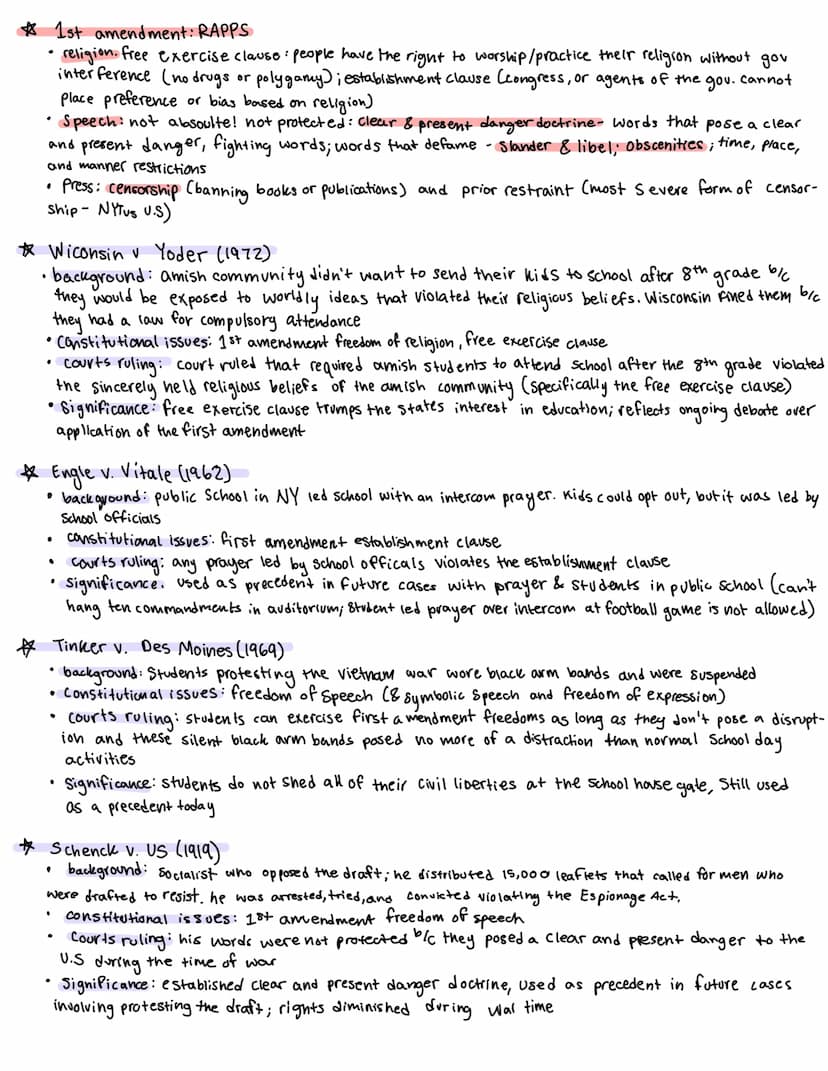 ☆ 1st amendment: RAPPS
• religion: free exercise clause: people have the right to worship/practice their religion without gov
interference (no drugs or polygamy); establishment clause (congress, or agents of the gov. cannot
place preference or bias based on religion)
• Speech: not absoulte! not protected: clear & present danger doctrine- words that pose a clear
and present danger, fighting words; words that defame - slander & libel; obscenities; time, place,
and manner restrictions
• Press: censorship (banning books or publications) and prior restraint (most severe form of censor-
ship - NYT vs U.S)
☆ Wiconsin v Yoder (1972)
• background: amish community didn't want to send their kids to school after 8th grade b/c
they would be exposed to worldly ideas that violated their religious beliefs. Wisconsin fined them b/c
they had a law for compulsory attendance
• Constitutional issues: 1st amendment freedom of religion, free excercise clause
• courts ruling: court ruled that required amish students to attend school after the 8th grade violated
the sincerely held religious beliefs of the amish community (specifically the free exercise clause)
• Significance: free exercise clause trumps the states interest in education; reflects ongoing debate over
application of the first amendment
☆ Engle v. Vitale (1962)
• background: public School in NY led school with an intercom prayer. Kids could opt out, but it was led by
school officials
• constitutional issues: first amendment establishment clause
• courts ruling: any prayer led by school officals violates the establishment clause
• significance. used as precedent in future cases with prayer & students in public school (can't
hang ten commandments in auditorium; student led prayer over intercom at football game is not allowed)
☆ Tinker v. Des Moines (1969)
• background: Students protesting the vietnam war wore black arm bands and were suspended
• Constitutional issues: freedom of speech (& symbolic speech and freedom of expression)
• courts ruling: students can exercise first amendment freedoms as long as they don't pose a disrupt-
ion and these silent black arm bands posed no more of a distraction than normal school day
activities
• Significance: students do not shed all of their civil liberties at the school house gate, still used
as a precedent today
☆ Schenck v. US (1919)
• background: socialist who opposed the draft; he distributed 15,000 leaflets that called for men who
were drafted to resist. he was arrested, tried, and convicted violating the Espionage Act.
• constitutional issues: 1st amendment freedom of speech
• Courts ruling: his words were not protected b/c they posed a clear and present danger to the
U.S during the time of war
• Significance: established clear and present danger doctrine, used as precedent in future cases
involving protesting the draft; rights diminished during war time